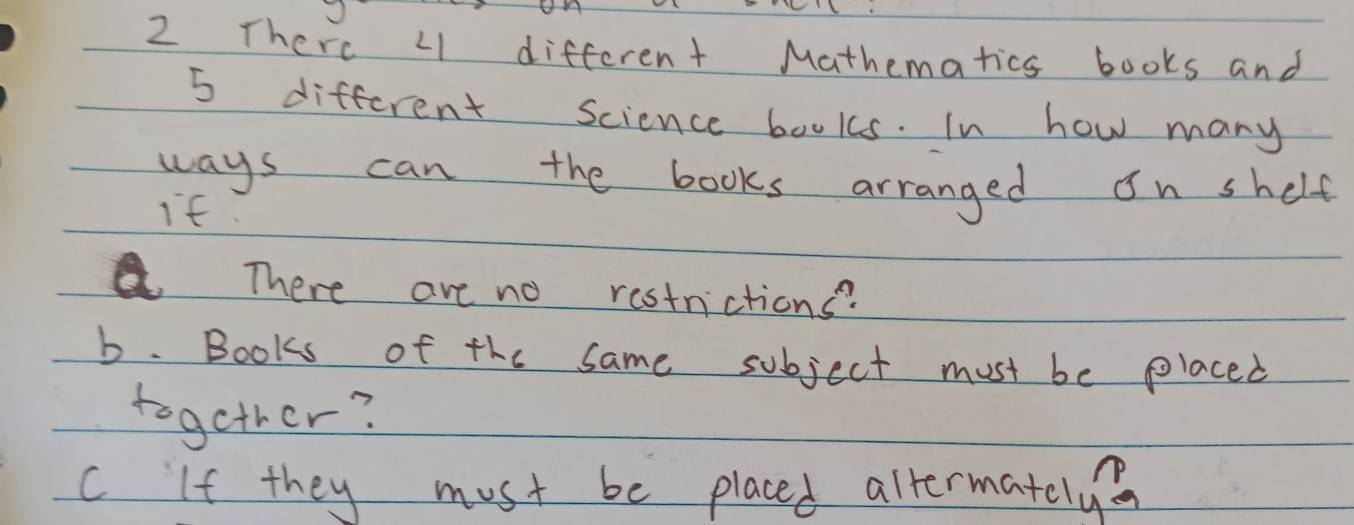 2 There 4 different Mathematics books and
5 different Science books. In how many
ways can the books arranged on shelf
if.
a There are no restrictions?
b. Books of the same subject must be placed
together?
c If they must be placed altermately?